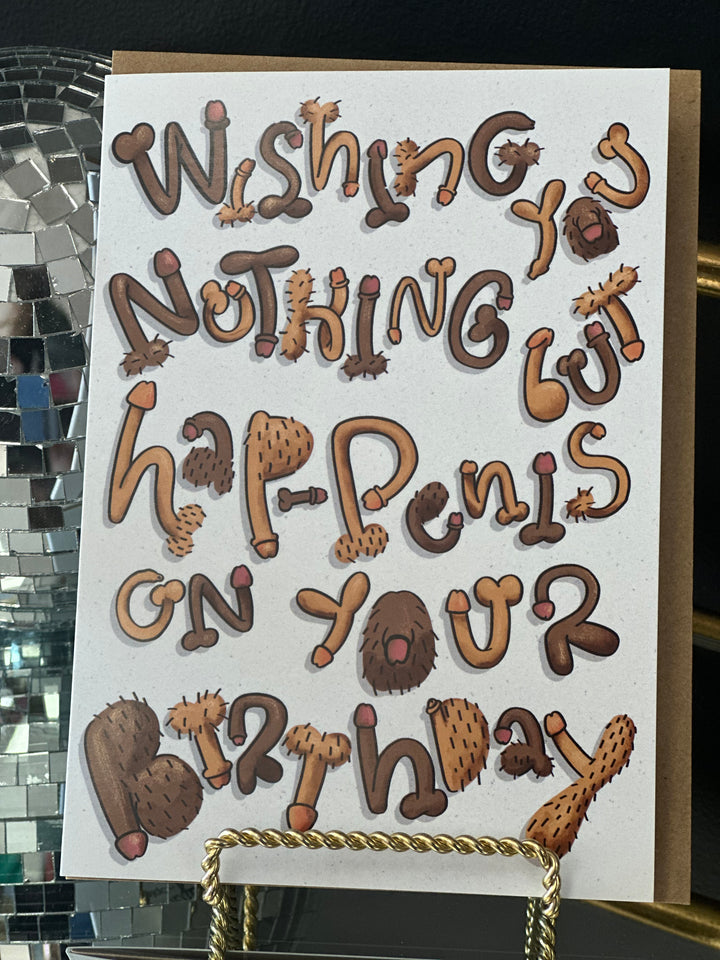 WiShiNG YOU
NOTHING BUT
hap-penis
ON YOUR
BIRThDAY